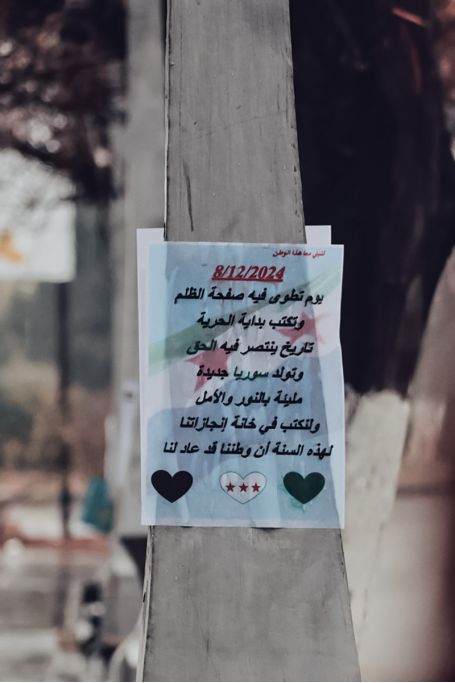 لنبني معا هذا الوطن
8/12/2024
يوم تطوى فيه صفحة الظلم
وتكتب بداية الحرية
تاريخ ينتصر فيه الحق
وتولد سوريا جديدة
مليئة بالنور والأمل
ولنكتب في خانة إنجازاتنا
لهذه السنة أن وطننا قد عاد لنا